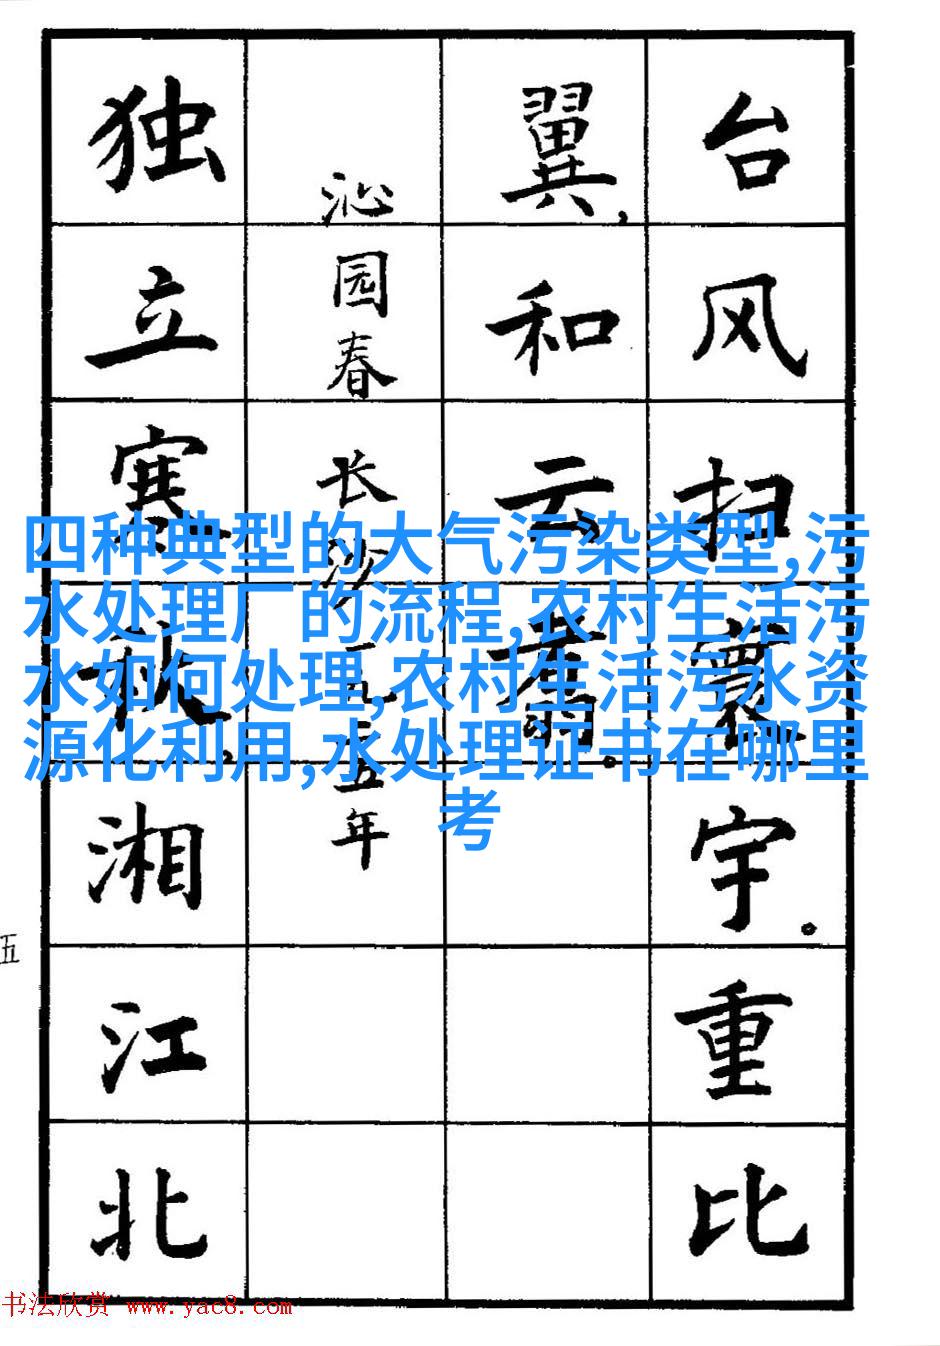 台风扫寰宇。重比
翼,和云翥。
沁园春 长沙 一九二五年
独立寒秋,湘江北
四种典型的大气污染类型,污
水处理厂的流程,农村生活污
水如何处理,农村生活污水资
源化利用,水处理证书在哪里
考
五
书法欣赏 www.yac8.com